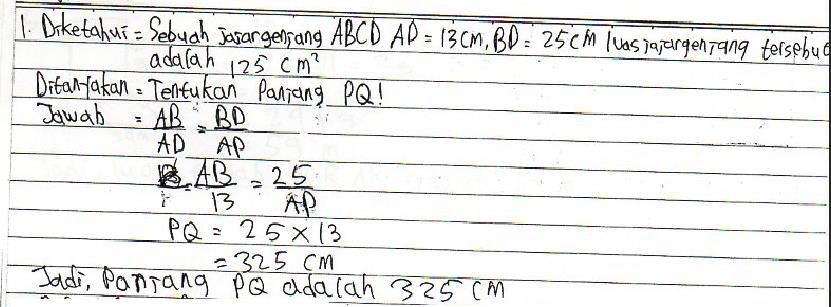 1. Diketahui = Sebuah Jajargenjang ABCD AD = 13 cm, BD = 25 cm luas jajargenjang tersebut
adalah 125 cm²
Ditanyakan = Tentukan Panjang PQ!
Jawab = AB/AD = BD/AP
AB/13 = 25/AP
PQ = 25 x 13
= 325 cm
Jadi, Panjang PQ adalah 325 cm